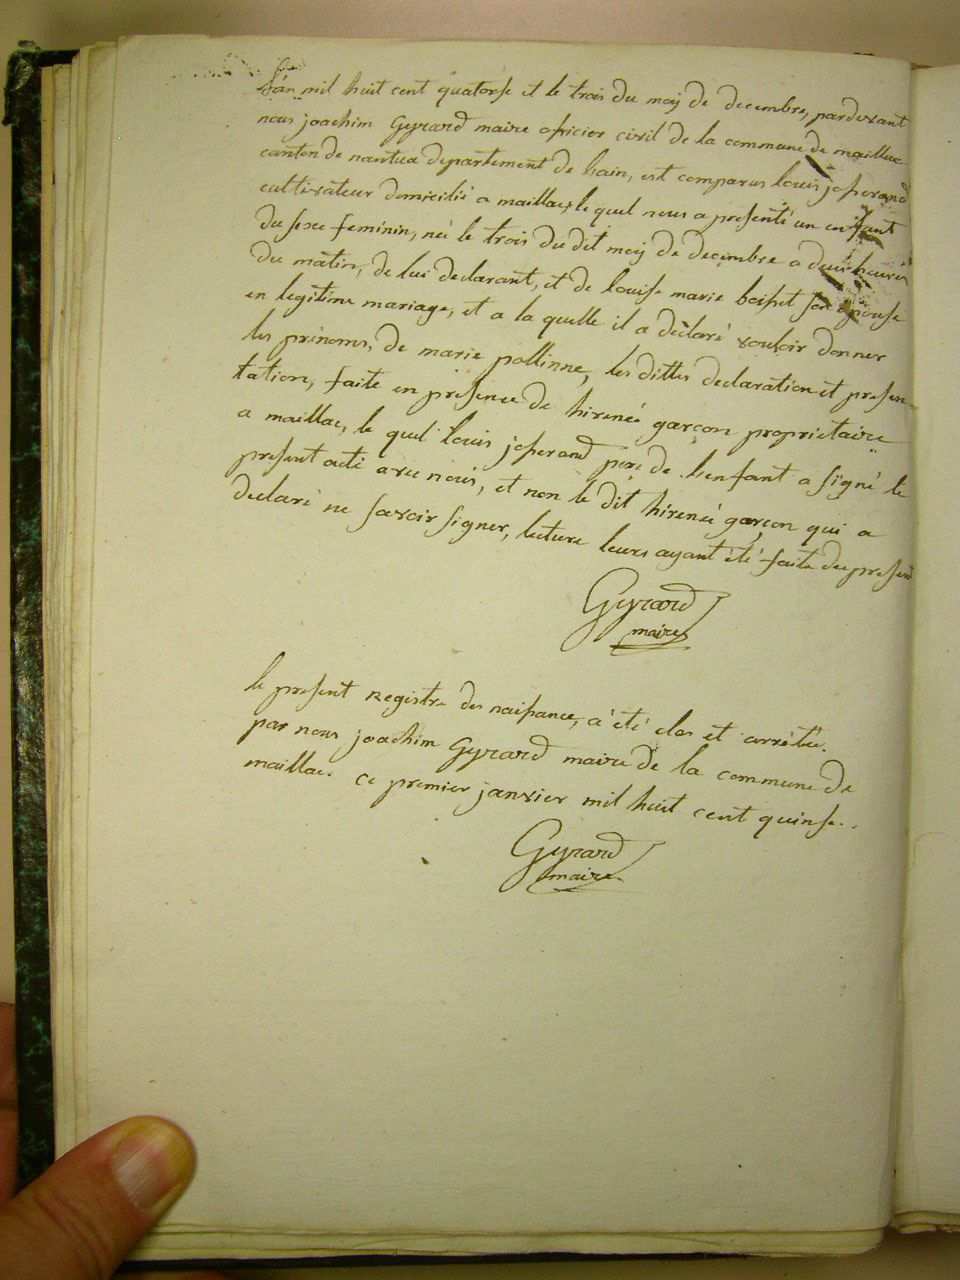 L'an mil huit cent quatorse et le trois du moij de decembre, pardevant
nous joachim Gyrard maire oficier civil de la commune de maillac
canton de nantua departement de lain, est comparus louis josserand
cultivateur domicilié a maillac, le quel nous a presenté un enfant
du sexe feminin, né le trois du dit moij de decembre a deux heures
du matin, de lui declarant, et de louise marie boisset son epouse
en legitime mariage, et a la quelle il a déclaré vouloir donner
les prénoms, de marie pollinne, les dittes declaration et presen-
tation, faite en presence de hirenée garçon propriétaire
a maillac, le quel louis josserand pere de lenfant a signé le
present acte avec nous, et non le dit hirenée garçon qui a
declaré ne savoir signer, lecture leurs ayant été faite du present
Gyrard
maire
le present registre des naissance, a été clos et arrêtée.
par nous joachim Gyrard maire de la commune de
maillac. ce premier janvier mil huit cent quinse.
Gyrard
maire